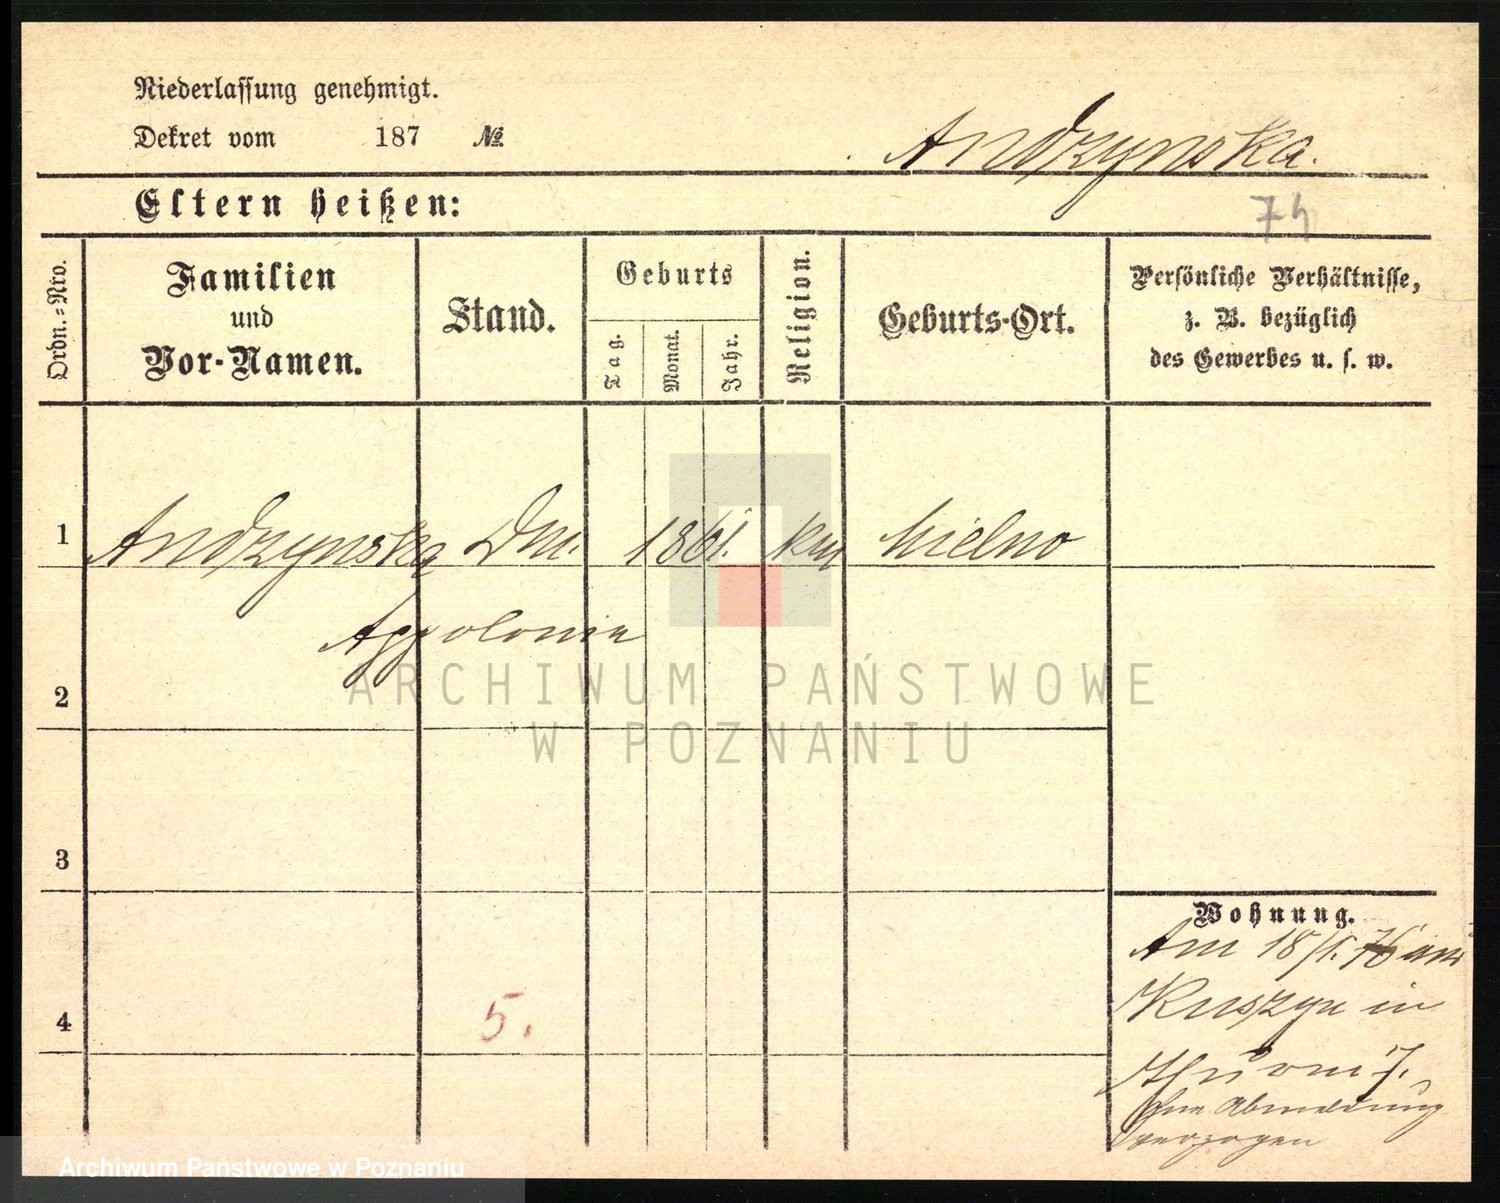 Niederlassung genehmigt.
Dekret vom 187 №
Andrzynska.
Eltern heißen:
74
Ordn.-Nro.
Familien
und
Vor-Namen.
Stand.
Geburts
Tag.
Monat.
Jahr.
Religion.
Geburts-Ort.
Persönliche Verhältnisse,
z. B. bezüglich
des Gewerbes u. s. w.
1 Andrzynska Dm. 1861. Mielno
Appolonia
2
3
Wohnung.
Am 18/1. 76 aus
in
4
5.
ohne Abmeldung
verzogen
ARCHIWUM PAŃSTWOWE
W POZNANIU
Archiwum Państwowe w Poznaniu